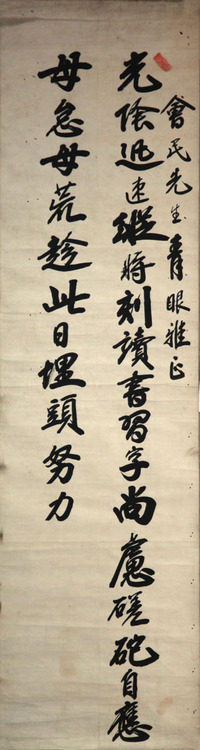 會民先生青眼雅正
光陰迅速縱將刻讀書習字尚慮磋砣自應
毋怠毋荒趁此日埋頭努力